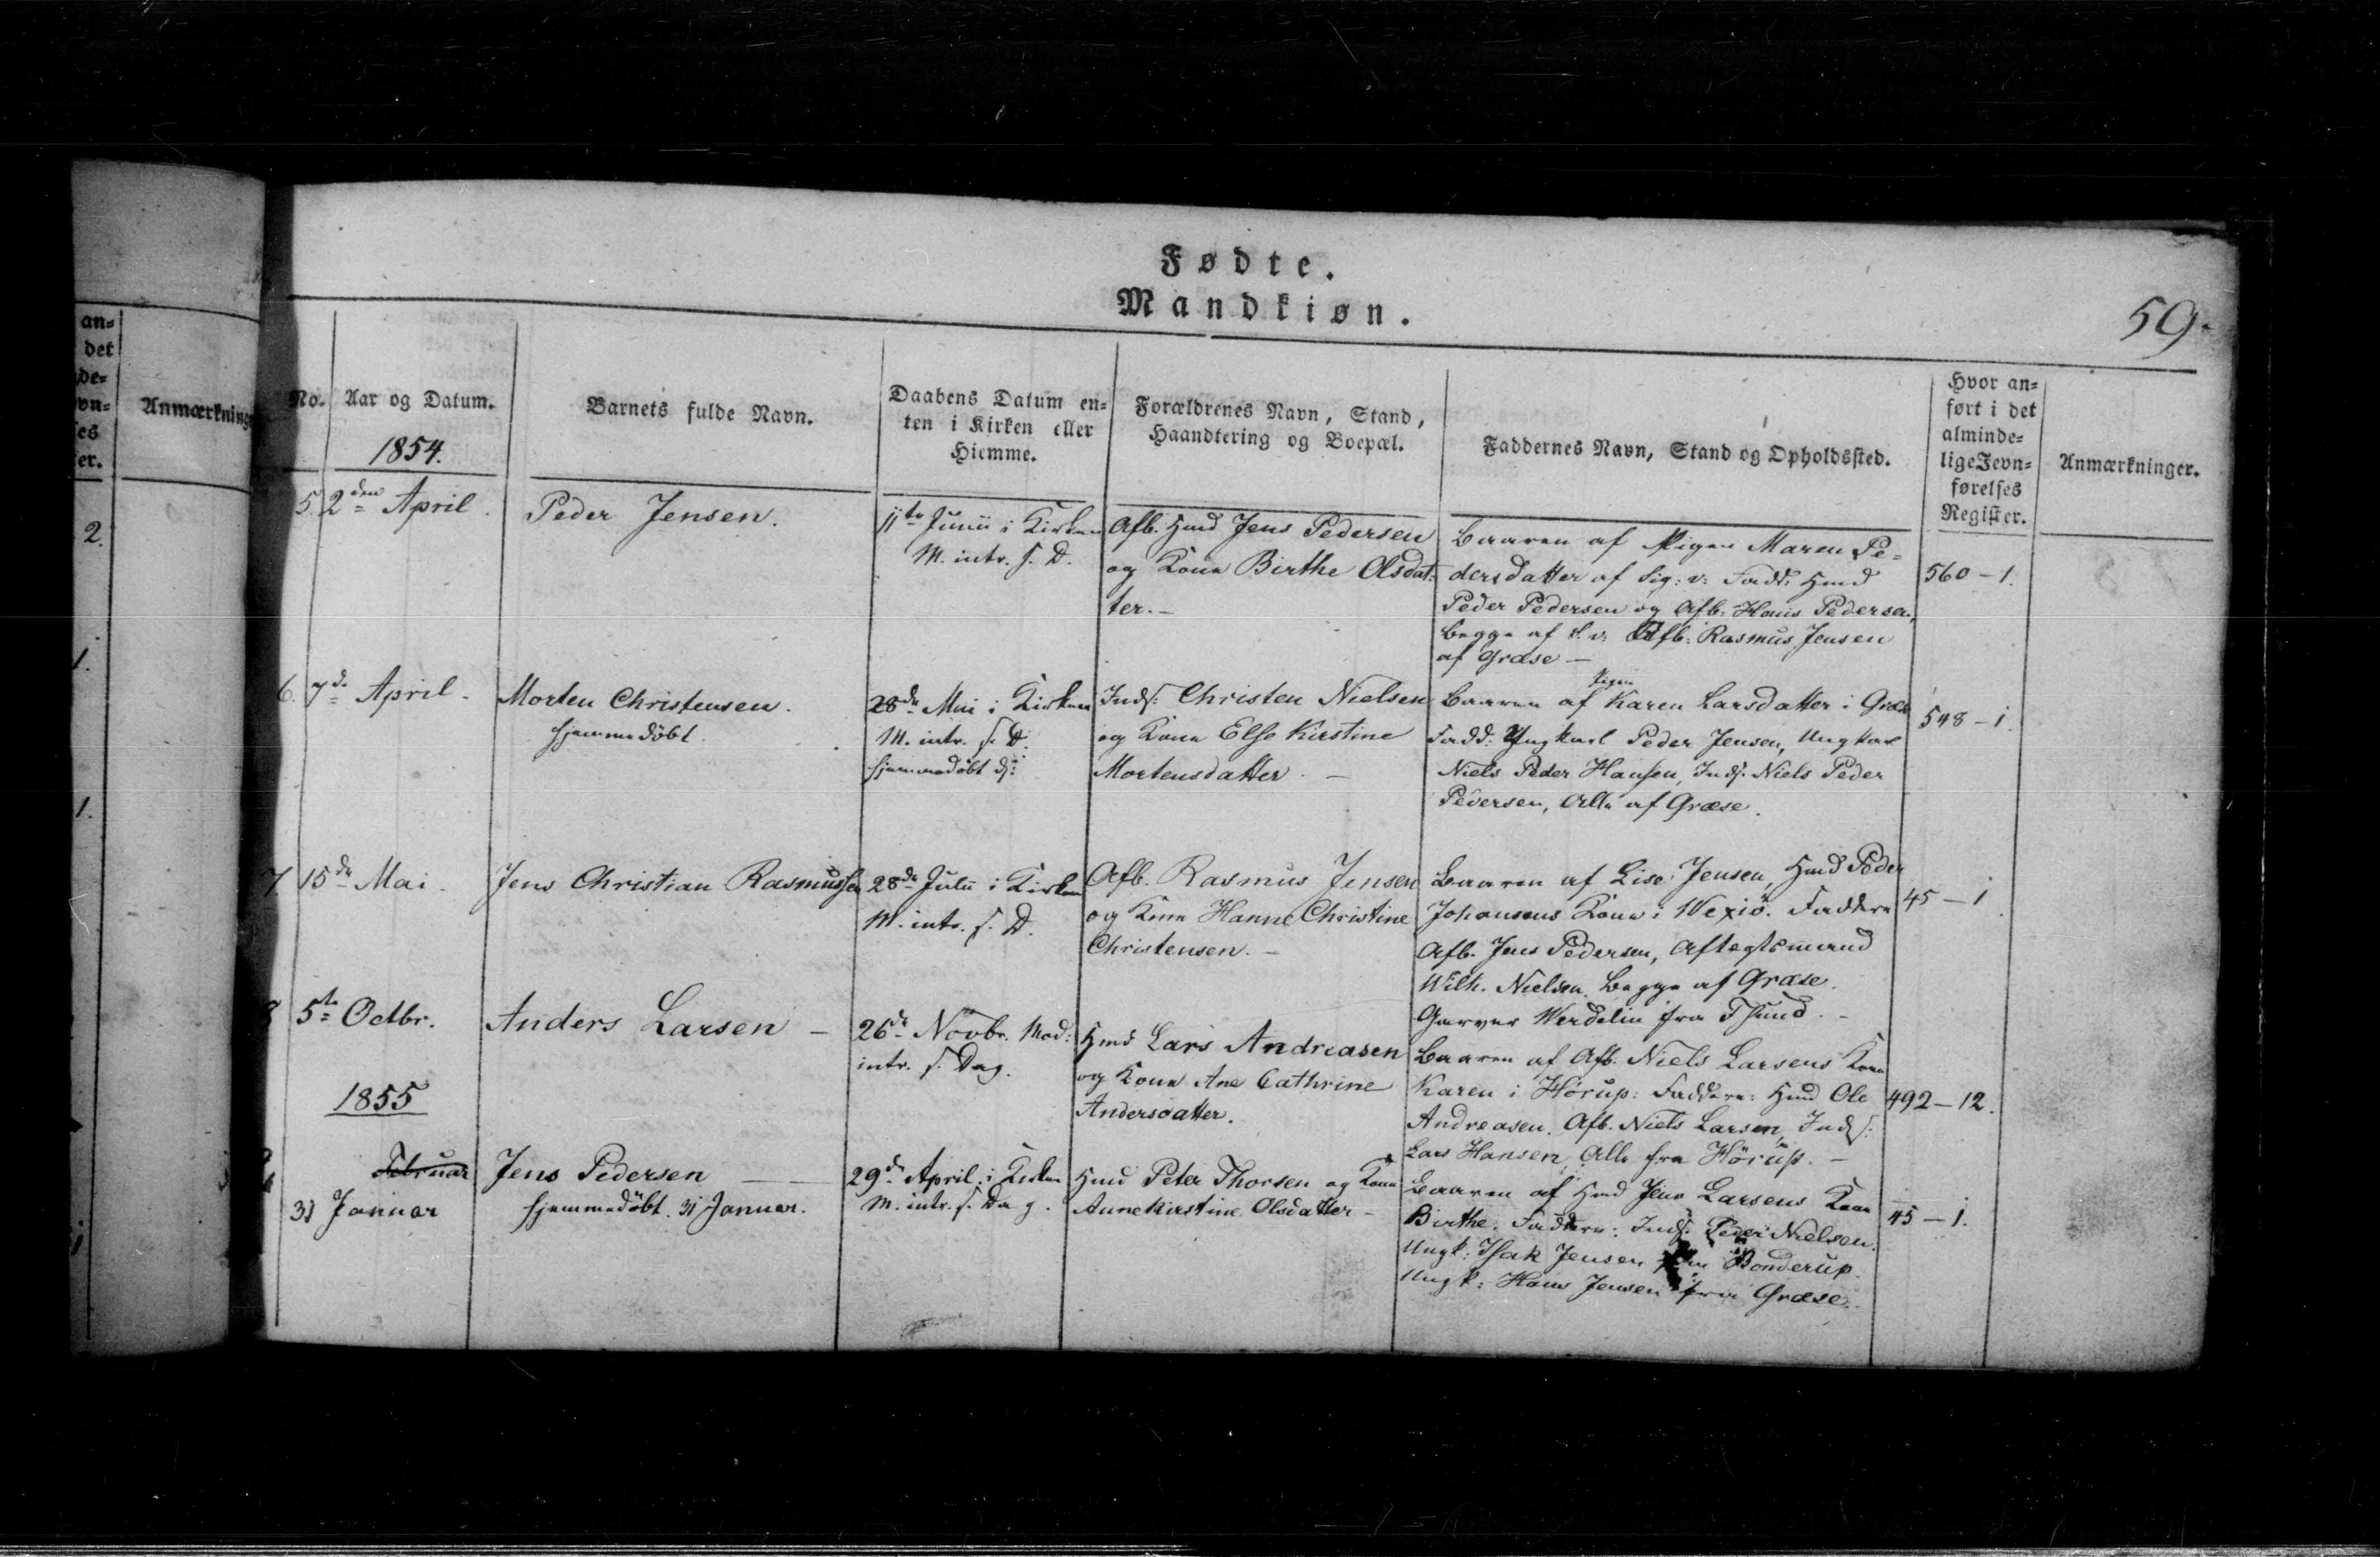 Fødte.
Mandkiøn.
59.
an=
det
de=
vn=
es
er.
Anmærkning
2.
1.
1.
No.
Aar og Datum.
1854.
Barnets fulde Navn.
Daabens Datum en=
ten i Kirken eller
Hiemme.
Forældrenes Navn, Stand,
Haandtering og Boepæl.
Faddernes Navn, Stand og Opholdssted.
Hvor an=
ført i det
alminde=
lige Jevn=
førelses
Register.
Anmærkninger.
5.
2den April.
Peder Jensen.
11te Junii i Kirken
M. intr. s. D.
Afb. Hmd Jens Pedersen
og Kone Birthe Olsdat=
ter. –
Baaren af Pigen Maren Pe=
dersdatter af Sig: v: Fadd: Hmd
Peder Pedersen og Afb. Hans Pedersen,
begge af S. v: Afb. Rasmus Jensen
af Græse –
560 – 1.
6.
7de April –
Morten Christensen.
hjemmedöbt.
28de Mai i Kirken
M. intr. s. D.
hjemmedöbt d:
Inds. Christen Nielsen
og Kone Else Kirstine
Mortensdatter. –
Pigen
Baaren af Karen Larsdatter i Græse
Fadd: Ungkarl Peder Jensen, Ungkarl
Niels Peder Hansen, Inds. Niels Peder
Pedersen, Alle af Græse.
548 – 1
7
15de Mai –
Jens Christian Rasmussen
28de Julii i Kirken
M. intr. s. D.
Afb. Rasmus Jensen
og Kone Hanne Christine
Christensen. –
Baaren af Lise Jensen, Hmd Peder
Johansens Kone i Wexiö. Faddere
Afb. Jens Pedersen, Aftegtsmand
Wilh. Nielsen, begge af Græse.
Garver Werdelin fra Fsund. –
45 – 1
8
5te Octbr.
Anders Larsen –
26de Novbr. Mod:
intr. s. Dag.
Hmd Lars Andreasen
og Kone Ane Cathrine
Andersdatter.
Baaren af Afb. Niels Larsens Kone
Karen i Hörup: Faddere: Hmd Ole
Andreasen. Afb. Niels Larsen, Inds:
Lars Hansen, Alle fra Hörup. –
492 – 12.
1855
Februar
31 Januar
Jens Pedersen –
hjemmedöbt 31 Januar.
29de April i Kirken
M. intr. s. Dag.
Hmd Peter Thorsen og Kone
Anne Kirstine Olsdatter –
Baaren af Hmd Jens Larsens Kone
Birthe. Faddere: Inds. Peder Nielsen.
Ungk: Isak Jensen fra Bonderup.
Ungk: Hans Jensen fra Græse.
45 – 1.